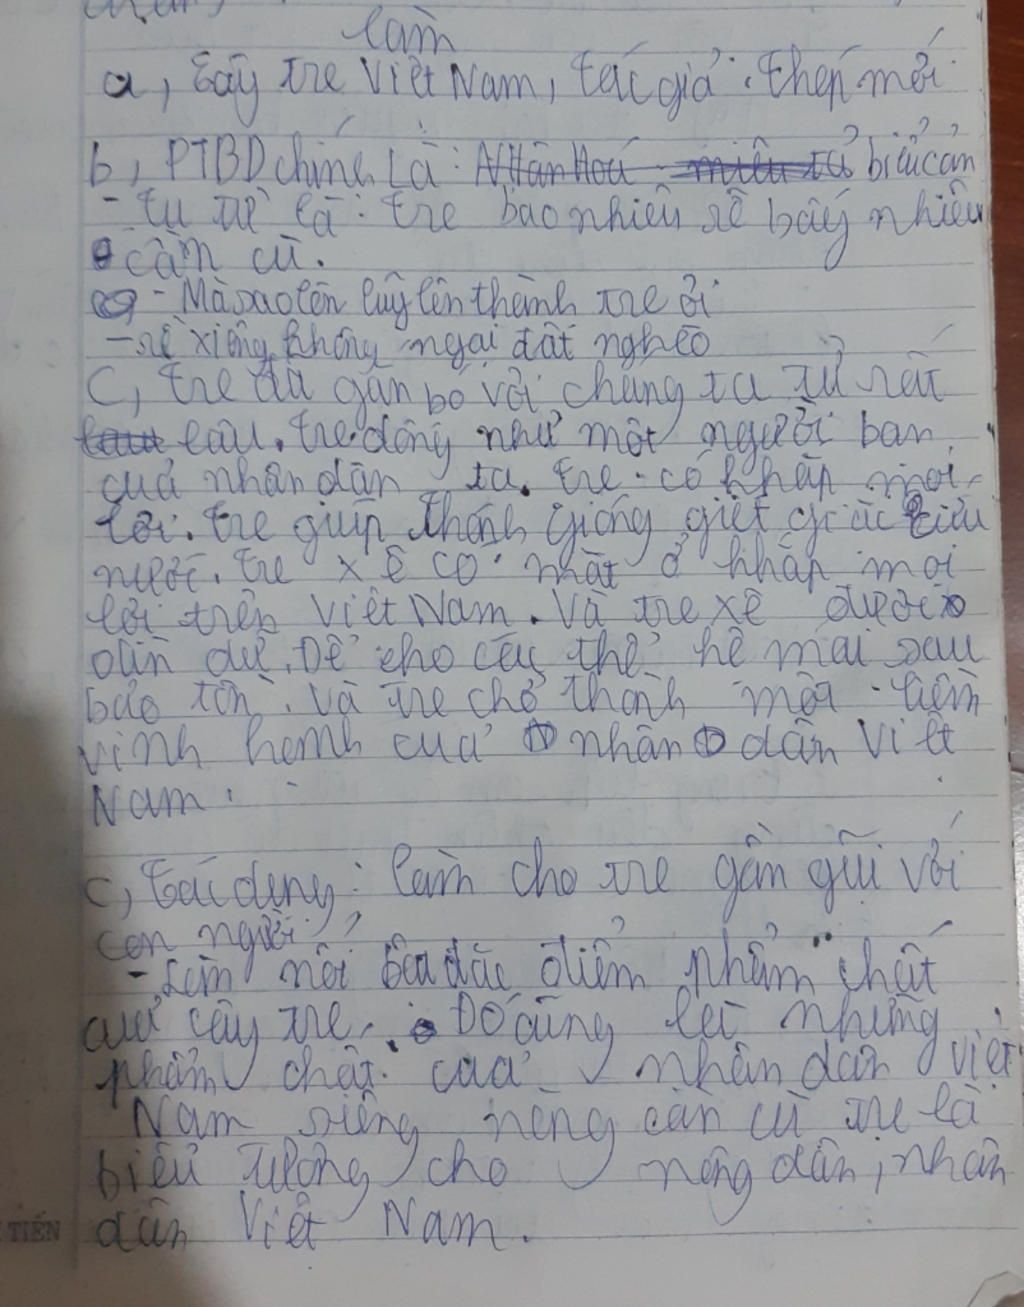 làm
a, Cây tre Việt Nam, tác giả: thép mới
b, PTBD chính Là: biểu cảm
- tu từ là: tre bao nhiêu rễ bấy nhiêu
cần cù.
- Mà sao lên luỹ lên thành tre ơi
- rễ xiêng không ngại đất nghèo
C, tre đã gắn bó với chúng ta từ rất
lâu. tre dống như một người bạn
của nhân dân ta. tre có khắp mọi
lơi. tre giúp thánh gióng giết giặc cứu
nước. tre xẽ có mặt ở khắp mọi
lơi trên Việt Nam. Và tre xẽ được
dìn dữ. Để cho các thế hệ mai sau
bảo tồn. Và tre chở thành một liềm
vinh hạnh của nhân dân Việt
Nam.
c, Tác dụng: làm cho tre gần gũi với
con người
- Làm nổi đặc điểm phẩm chất
của cây tre. Đó cũng là những
phẩm chất của nhân dân Việt
Nam siêng năng cần cù tre là
biểu tượng cho nông dân, nhân
dân Việt Nam.
TIẾN